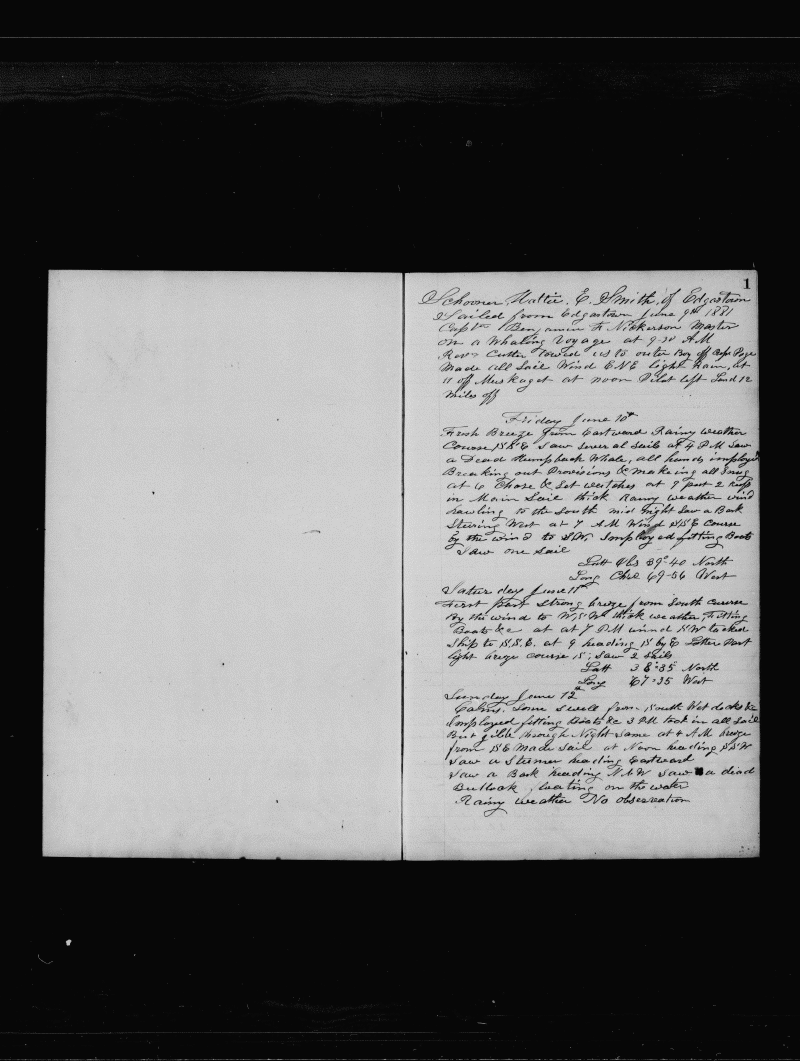 1
Schooner Hattie. E. Smith, of Edgartown
Sailed from Edgartown June 9th 1881
Capt Benjamin F Nickerson Master
on a Whaling Voyage at 9-30 AM
Revn Cutter towed us to outer Boy off Cape Poge
Made all Sail Wind ENE light Rain, at
11 off Muskaget at noon Pilot left Land 12
miles off
Friday June 10th
Fresh Breeze from Eastward Rainy weather
Course SSE Saw several Sails at 4 PM Saw
a Dead Humpback Whale, all hands imployed
Breaking out Provisions & makeing all Snug
at 6 Chose & Set watches at 9 put 2 reefs
in Main Sail thick Rainy weather wind
hawling to the South mid night Saw a Bark
Steering West at 7 AM Wind SSE Course
by the wind to SW. Imployed fitting Boats
Saw one Sail
Latt Obs 39°-40 North
Long Chro 69-56 West
Saturday June 11th
First part Strong breze from South Course
By the wind to W,S,W thick weather, Fitting
Boats &c at at 7 PM wind SW tacked
Ship to S.S.E. at 9 heading S by E Latter part
light breze course S; Saw 2 Sails
Latt 38°35 North
Long 67°35 West
Sunday June 12th
Calms. Some Swell from South Wet decks &c
Imployed fitting Boats &c 3 PM took in all Sail
But gibb through Night Same at 4 AM breze
from SE Made Sail at Noon heading SSW
Saw a Steemer heading Eastward
Saw a Bark heading N.N.W Saw a dead
Bullock floating on the water
Rainy weather No observation